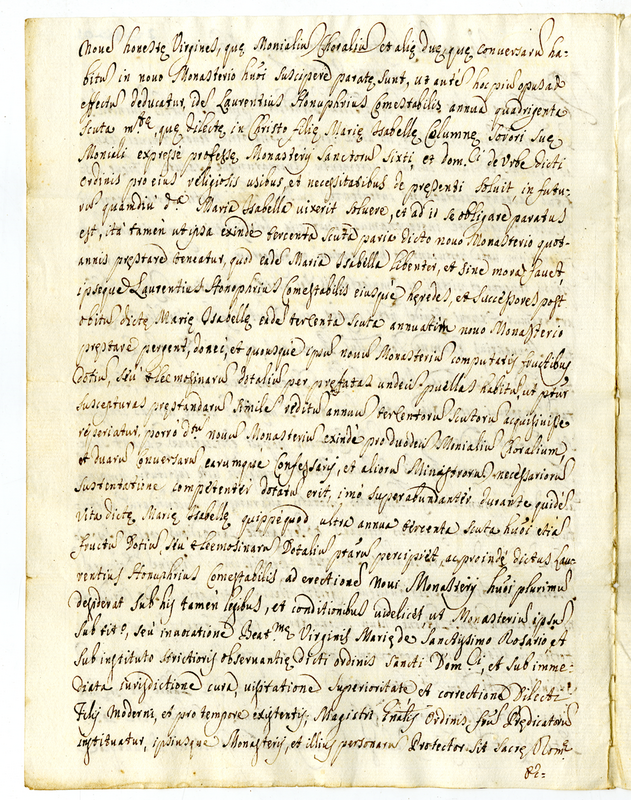 novem honestę Virgines, quę Monialiũ Choraliũ, et alię duę, quę conversarũ ha-
bitũ in novo Monasterio huõi suscipere paratę sunt, ut autẽ hoc pium opus ad
effectũ deducatur, idẽ Laurentius Honuphrius Comestabilis annua quadringenta
scuta mtę, quę dilectę in Christo filię Marię Isabellę Columnę Sorori suę
Moniali expressè professę Monasterij Sanctorũ Sixti, et Dom.ci de Urbe dicti
ordinis pro eius religiosis usibus, et necessitatibus de pręsenti solvit, in futu-
rũ quamdiu d.ta Maria Isabella vixerit solvere, et ad id se obligare paratus
est, ita tamen ut ipsa exinde tercenta scuta paria dicto novo Monasterio quot-
annis pręstare teneatur, quod eadẽ Maria Isabella libenter, et sine mora favet,
ipseque Laurentius Honophrius Comestabilis eiusque hęredes, et Successores post
obitũ dictę Marię Isabellę eadẽ tercenta scuta annuatim novo Monasterio
pręstare pergent, donec, et quousque ipsũ novũ Monasteriũ computatis fructibus
Dotiũ, seu Eleemosinarũ Dotaliũ per pręfatas undecim puellas habitũ, ut pfur
suscepturas pręstandarũ simile redditũ annuũ tercentorũ scutorũ acquisivisse
reperiatur, porrò d.tũ novũ Monasteriũ exinde pro duodecim Monialiũ Choraliũ,
et duarũ Conversarũ earumque Confessarij, et aliorũ Ministrorũ necessariorũ
sustentatione competenter dotatũ erit, imò superabundanter durante quidẽ
vita dictę Marię Isabellę quippe quod ultra annua tercenta scuta huõi etiã
fructus Dotiũ seu Eleemosinarũ Dotaliũ pfarũ percipiet, ac proinde dictus Lau-
rentius Honuphrius Comestabilis ad erectionẽ Novi Monasterij huõi plurimũ
desiderat sub his tamen legibus, et conditionibus videlicet, ut Monasteriũ ipsũ
sub tit.o, seu invocatione Beat.mę Virginis Marię de Sanctissimo Rosario et
sub instituto strictioris observantię dicti ordinis Sancti Dom.ci, et sub imme-
diata iurisdictione cura, visitatione superioritate et correctione Dilecti
Filij moderni, et pro tempore existentis Magistri Gnãlis Ordinis frũm Prędicatorũ
instituatur, ipsiusque Monasterij, et illius personarũ Protector sit Sacrę Rom.ę